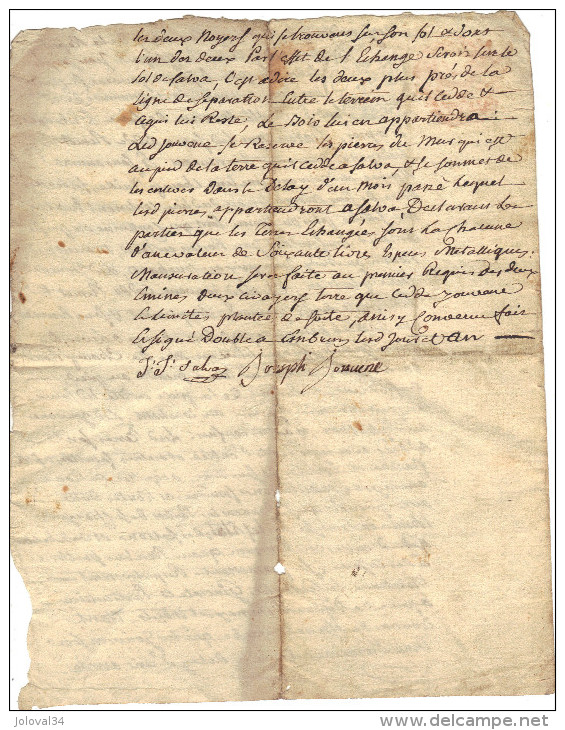 les deux Noyers qui se trouvons sur son sol & dont
l'un des deux Par l'effet de l'Echange Serois sur le
sol de salva, C'est adire les deux plus prés de la
ligne de séparation Entre le terrein qu'il Cedde &
Celui qui lui Reste, Le Bois lui en appartiendra :
Led jouvene se Reserve les pierres du Mur qui est
au pied de la terre qu'il Cedde a salva, & le sommet de
dans le Delay d'un Mois passé lequel
lesd pierres appartiendront a salva Declarant les
parties que les Terres Echangées sont La chacune
d'une valeur de Soixante livres Espece Metallique.
Mansuration sera faite au premier Requis des deux
Emines deux civayers terre que Cedde jouvene
& limites plantée de suite, ainsy Convenu fait
& signé Double a Embrun lesd Jour & an
Jh. Jh. Salva Joseph Jouvene
joloval34
www.delcampe.net